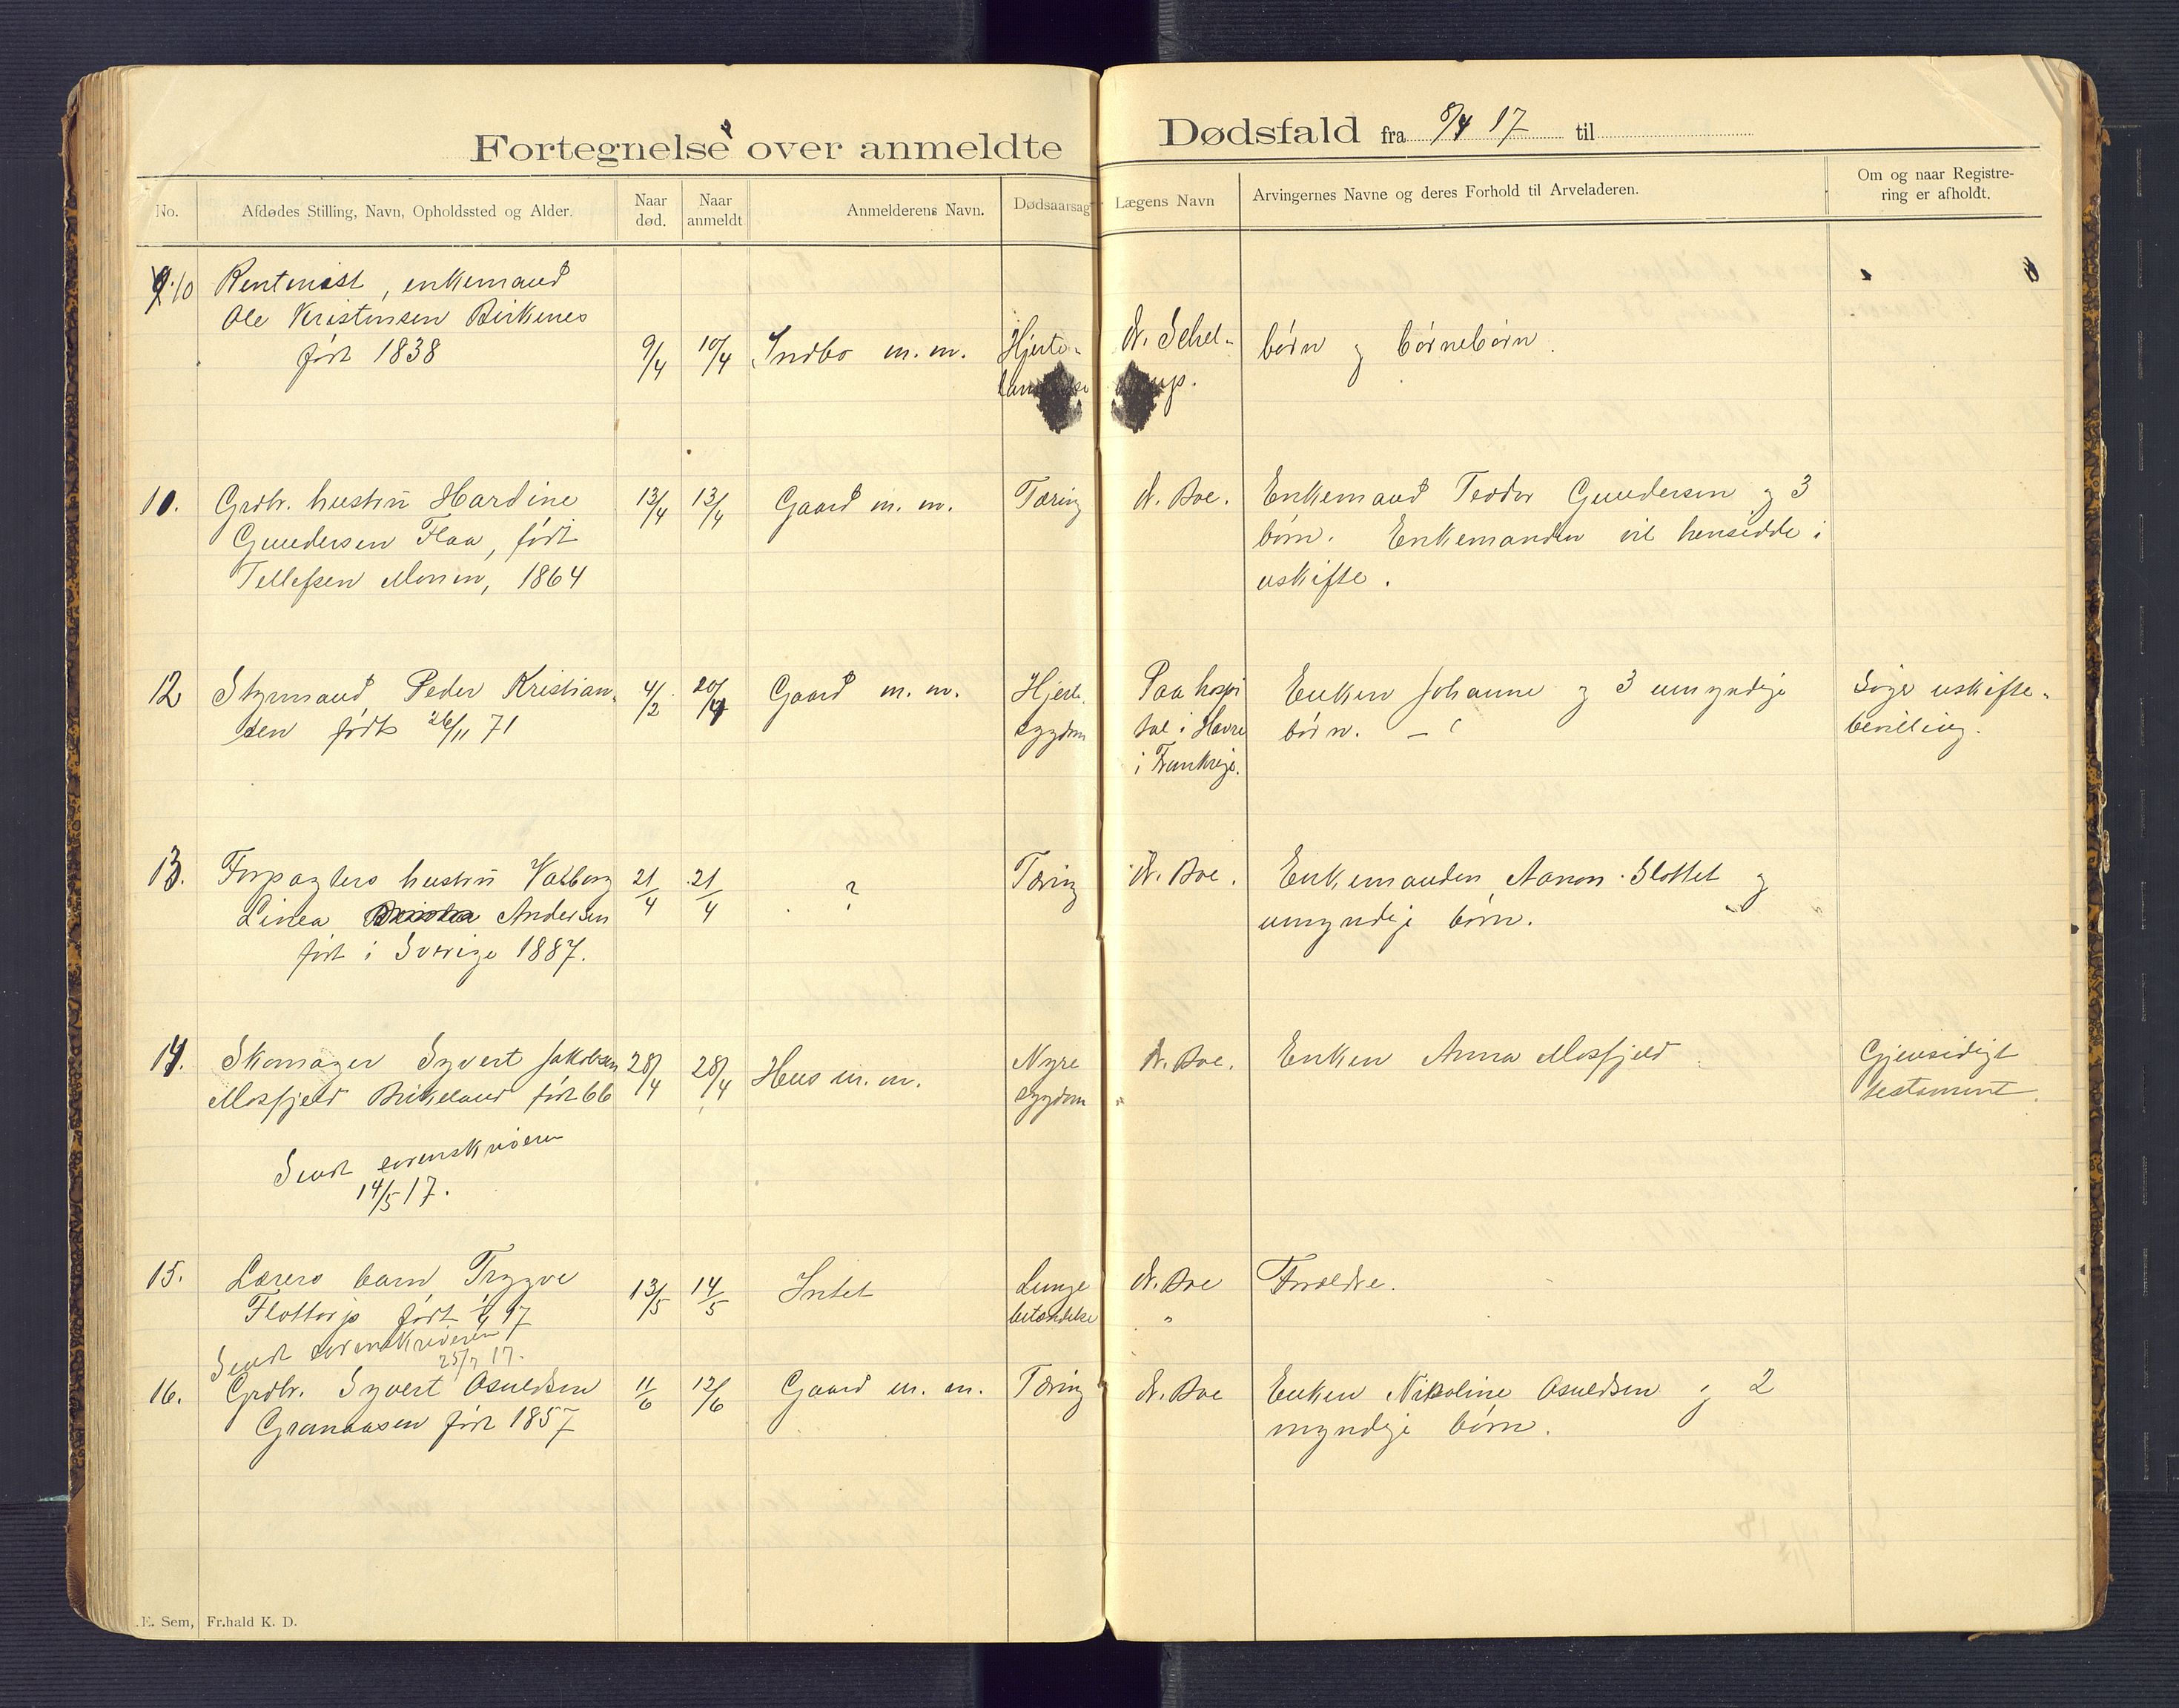 Fortegnelse over anmeldte Dødsfald fra 8/4 17 til
No. Afdødes Stilling, Navn, Opholdssted og Alder. Naar død. Naar anmeldt Anmelderens Navn. Dødsaarsag Lægens Navn Arvingernes Navne og deres Forhold til Arveladeren. Om og naar Registrering er afholdt.
10 Rentenist, enkemand
Ole Kristensen Birkenes
født 1838 9/4 10/4 Indbo m. m. Hjerte- dr. Schel- børn og børnebørn.
10. Grdbr. hustru Hardine 13/4 13/4 Gaard m. m. Tæring dr. Boe. Enkemand Teodor Gundersen og 3
Gundersen Flaa, født børn. Enkemanden vil hensidde i
Tellefsen Monen, 1864 uskifte.
12 Styrmand Peder Kristian- 4/2 20/4 Gaard m. m. Hjerte Paa hospi Enken Johanne og 3 umyndige Søger uskifte-
sen født 26/11 71 sygdom tal i Havre børn. bevilling.
i Frankrige.
13. Forpagters hustru Valborg 21/4 21/4 ? Tæring dr. Boe. Enkemanden Aanon Slottet og
Linea Andersen umyndige børn.
født i Sverige 1887.
14. Skomager Syvert Jakobsen 28/4 28/4 Hus m. m. Nyre dr. Boe. Enken Anna Mosfjeld Gjensidigt
Mosfjeld Birkeland født 66 sygdom testament.
Sendt sorenskriveren
14/5 17.
15. Lærers barn Tryggve 13/5 14/5 Intet Lunge dr. Boe Forældre.
Flottorp født 17 betændelse "
Sendt sorenskriveren
25/7 17.
16. Grdbr. Syvert Osuldsen 11/6 12/6 Gaard m. m. Tæring dr. Boe Enken Nikoline Osuldsen og 2
Granaasen født 1857 myndige børn.
E. Sem, Fr.hald K. D.